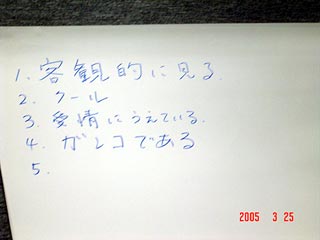 1. 客観的に見る.
2. クール
3. 愛情にうえている.
4. ガンコである
5.
2005 3 25